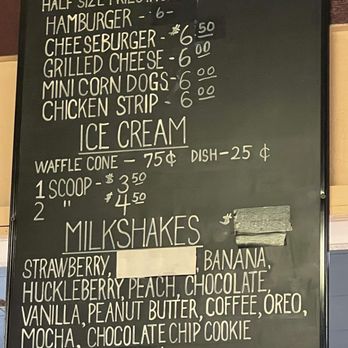 HALF SIZE FRIES
HAMBURGER - 6-
CHEESEBURGER - $6 50
GRILLED CHEESE - 6 00
MINI CORN DOGS - 6 00
CHICKEN STRIP - 6 00
ICE CREAM
WAFFLE CONE - 75¢ DISH - 25¢
1 SCOOP - $3.50
2 " $4.50
MILKSHAKES $
STRAWBERRY, , BANANA,
HUCKLEBERRY, PEACH, CHOCOLATE,
VANILLA, PEANUT BUTTER, COFFEE, OREO,
MOCHA, CHOCOLATE CHIP COOKIE